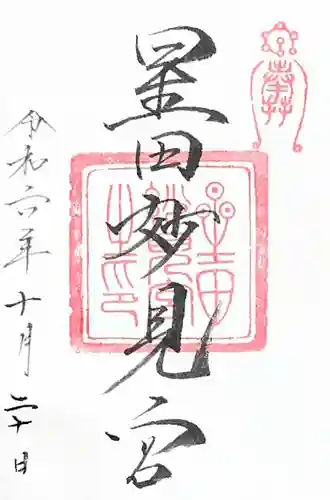 奉拝
星田妙見宮
令和六年十月二十日